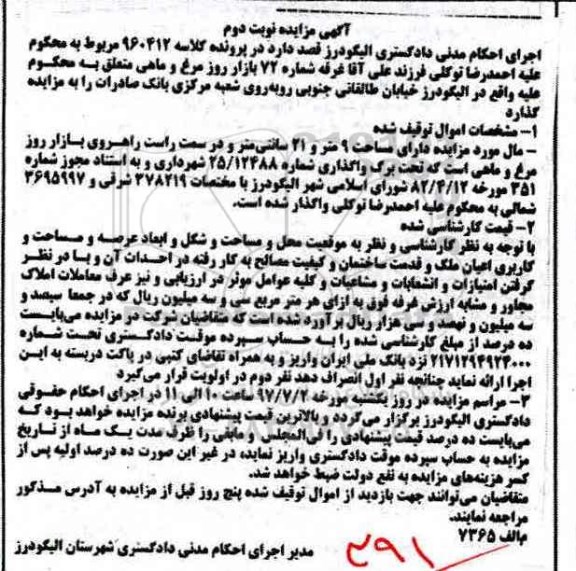 آگهی مزایده نوبت دوم
اجرای احکام مدنی دادگستری الیگودرز قصد دارد در پرونده کلاسه ۹۶۰۴۱۲ مربوط به محکوم
علیه احمدرضا توکلی فرزند علی آقا غرفه شماره ۷۲ بازار روز مرغ و ماهی متعلق به محکوم
علیه واقع در الیگودرز خیابان طالقانی جنوبی روبه‌روی شعبه مرکزی بانک صادرات را به مزایده
گذارد
۱- مشخصات اموال توقیف شده
- مال مورد مزایده دارای مساحت ۹ متر و ۲۱ سانتی‌متر و در سمت راست راهروی بازار روز
مرغ و ماهی است که تحت برگ واگذاری شماره ۲۵/۱۲۴۸۸ شهرداری و به استناد مجوز شماره
۳۵۱ مورخه ۸۲/۴/۱۲ شورای اسلامی شهر الیگودرز با مختصات ۳۷۸۲۱۹ شرقی و ۳۶۹۵۹۹۷
شمالی به محکوم علیه احمدرضا توکلی واگذار شده است.
۲- قیمت کارشناسی شده
با توجه به نظر کارشناسی و نظر به موقعیت محل و مساحت و شکل و ابعاد عرصه و مساحت و
کاربری اعیان ملک و قدمت ساختمان و کیفیت مصالح به کار رفته در احداث آن و با در نظر
گرفتن امتیازات و انشعابات و مشاعیات و کلیه عوامل موثر در ارزیابی و نیز عرف معاملات املاک
مجاور و مشابه ارزش غرفه فوق به ازای هر متر مربع سی و سه میلیون ریال که در جمعا سیصد و
سه میلیون و نهصد و سی هزار ریال برآورد شده است که متقاضیان شرکت در مزایده می‌بایست
ده درصد از مبلغ کارشناسی شده را به حساب سپرده موقت دادگستری تحت شماره
۲۱۷۱۲۹۴۹۲۴۰۰۰ نزد بانک ملی ایران واریز و به همراه تقاضای کتبی در پاکت دربسته به این
اجرا ارائه نماید چنانچه نفر اول انصراف دهد نفر دوم در اولویت قرار می‌گیرد
۳- مراسم مزایده در روز یکشنبه مورخه ۹۷/۷/۲ ساعت ۱۰ الی ۱۱ در اجرای احکام حقوقی
دادگستری الیگودرز برگزار می‌گردد و بالاترین قیمت پیشنهادی برنده مزایده خواهد بود که
می‌بایست ده درصد قیمت پیشنهادی را فی‌المجلس و مابقی را ظرف مدت یک ماه از تاریخ
مزایده به حساب سپرده موقت دادگستری واریز نماید، در غیر این صورت ده درصد اولیه پس از
کسر هزینه‌های مزایده به نفع دولت ضبط خواهد شد.
متقاضیان می‌توانند جهت بازدید از اموال توقیف شده پنج روز قبل از مزایده به آدرس مذکور
مراجعه نمایند.
م‌الف ۷۳۶۵
مدیر اجرای احکام مدنی دادگستری شهرستان الیگودرز
۳۹۱